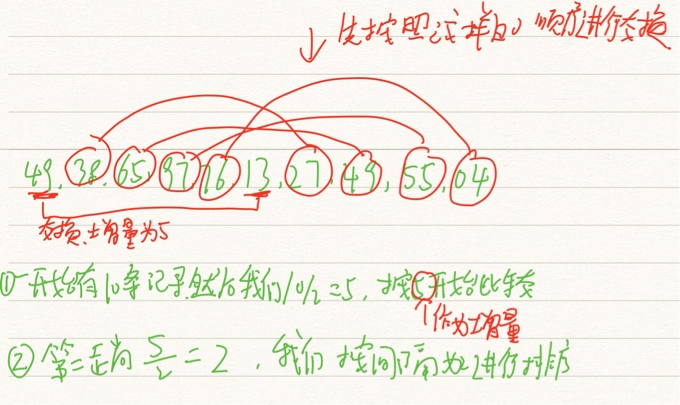 先按照这样的顺序进行交换
49,38,65,97,76,13,27,49,55,04
交换,增量为5
①一开始有10条记录,然后我们10/2=5,按5开始比较
个作为增量
②第二趟 5/2=2,我们按间隔为2进行排序